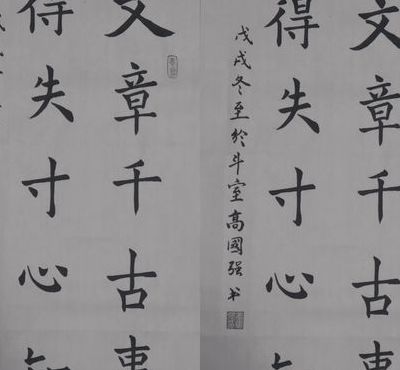 文章千古事
得失寸心
戊戌冬至於斗室高國强书
文章千古事
得失寸心